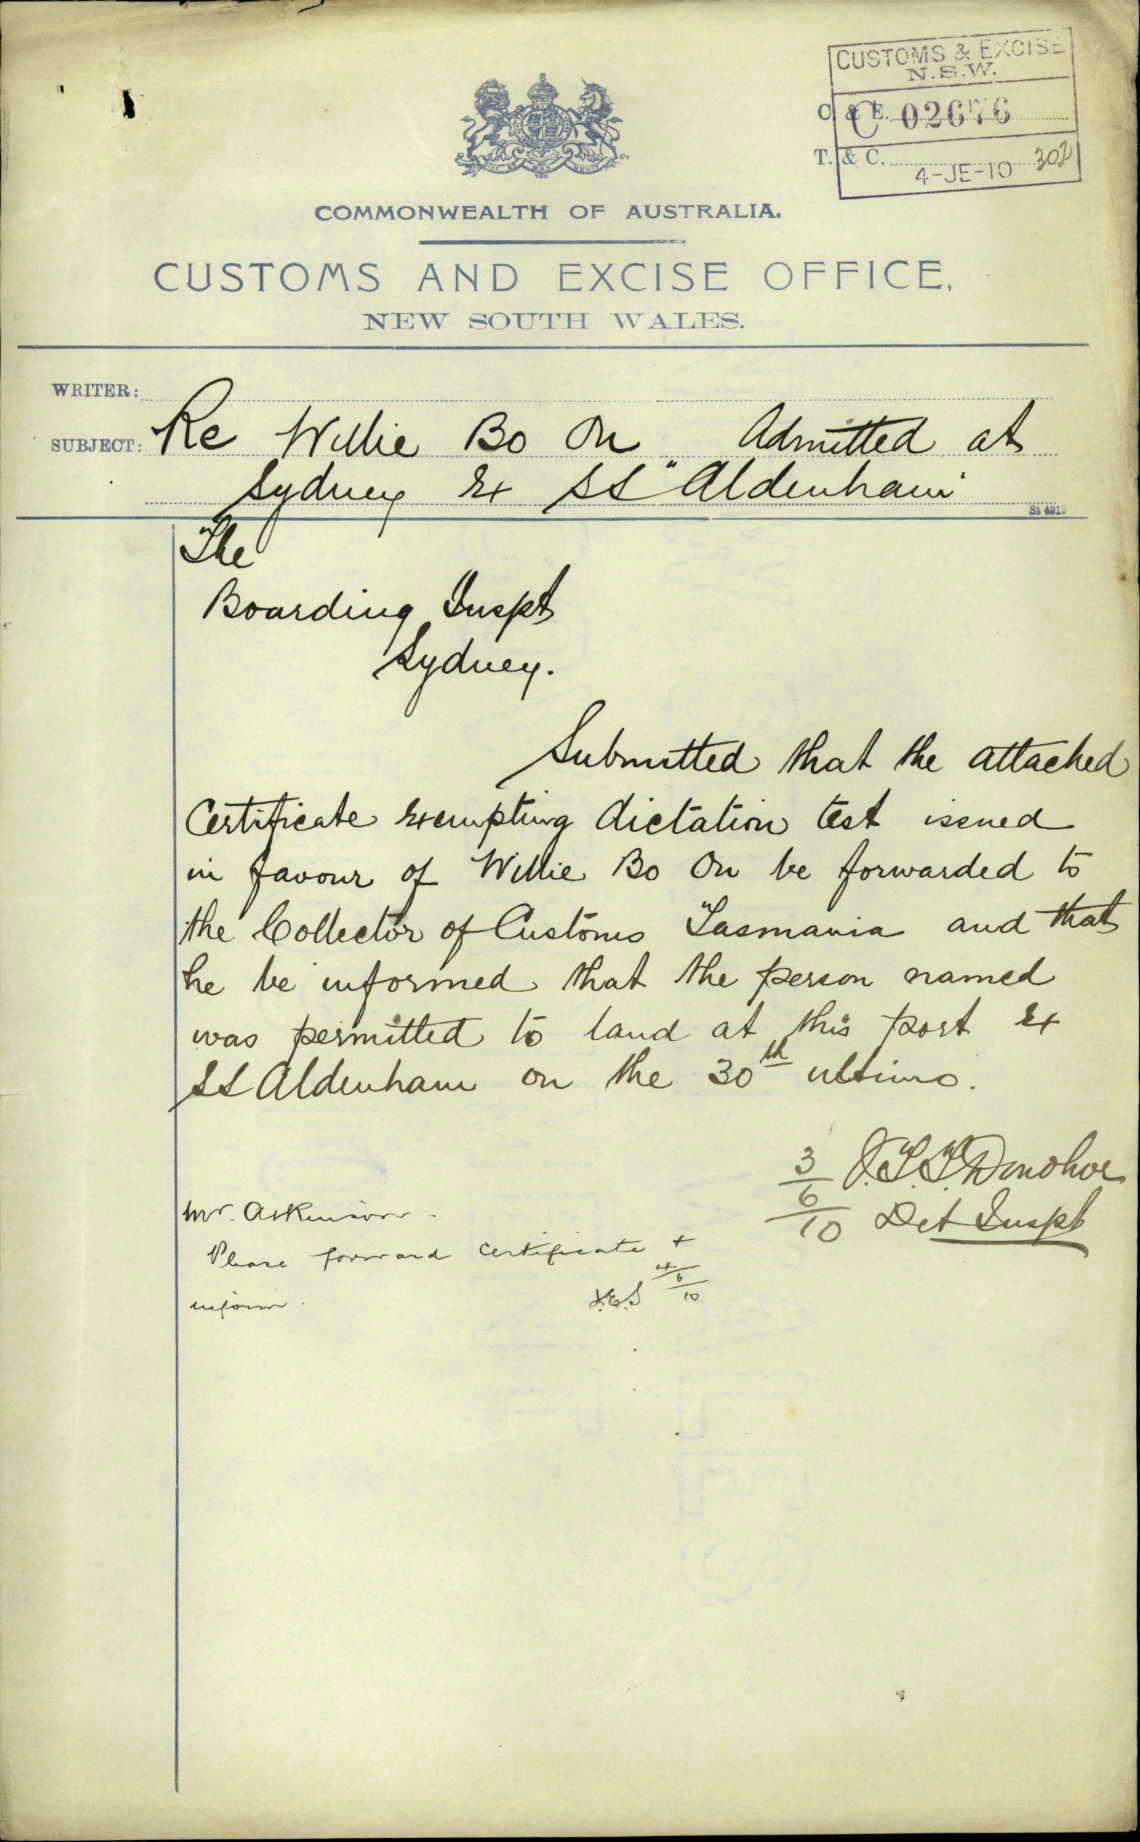 CUSTOMS & EXCISE
N.S.W.
C. & E. C 02676
T. & C. 302
4-JE-10
COMMONWEALTH OF AUSTRALIA.
CUSTOMS AND EXCISE OFFICE,
NEW SOUTH WALES.
WRITER:
SUBJECT: Re Willie Bo On Admitted at
Sydney Ex SS "Aldenham"
The
Boarding Inspt
Sydney.
Submitted that the attached
Certificate Exempting dictation test issued
in favour of Willie Bo On be forwarded to
the Collector of Customs Tasmania and that
he be informed that the person named
was permitted to land at this port Ex
SS Aldenham on the 30th ultimo.
3/6/10 J.T.T. Donohoe
Det Inspt
Mr. Atkinson -
Please forward certificate +
inform. 4/6/10